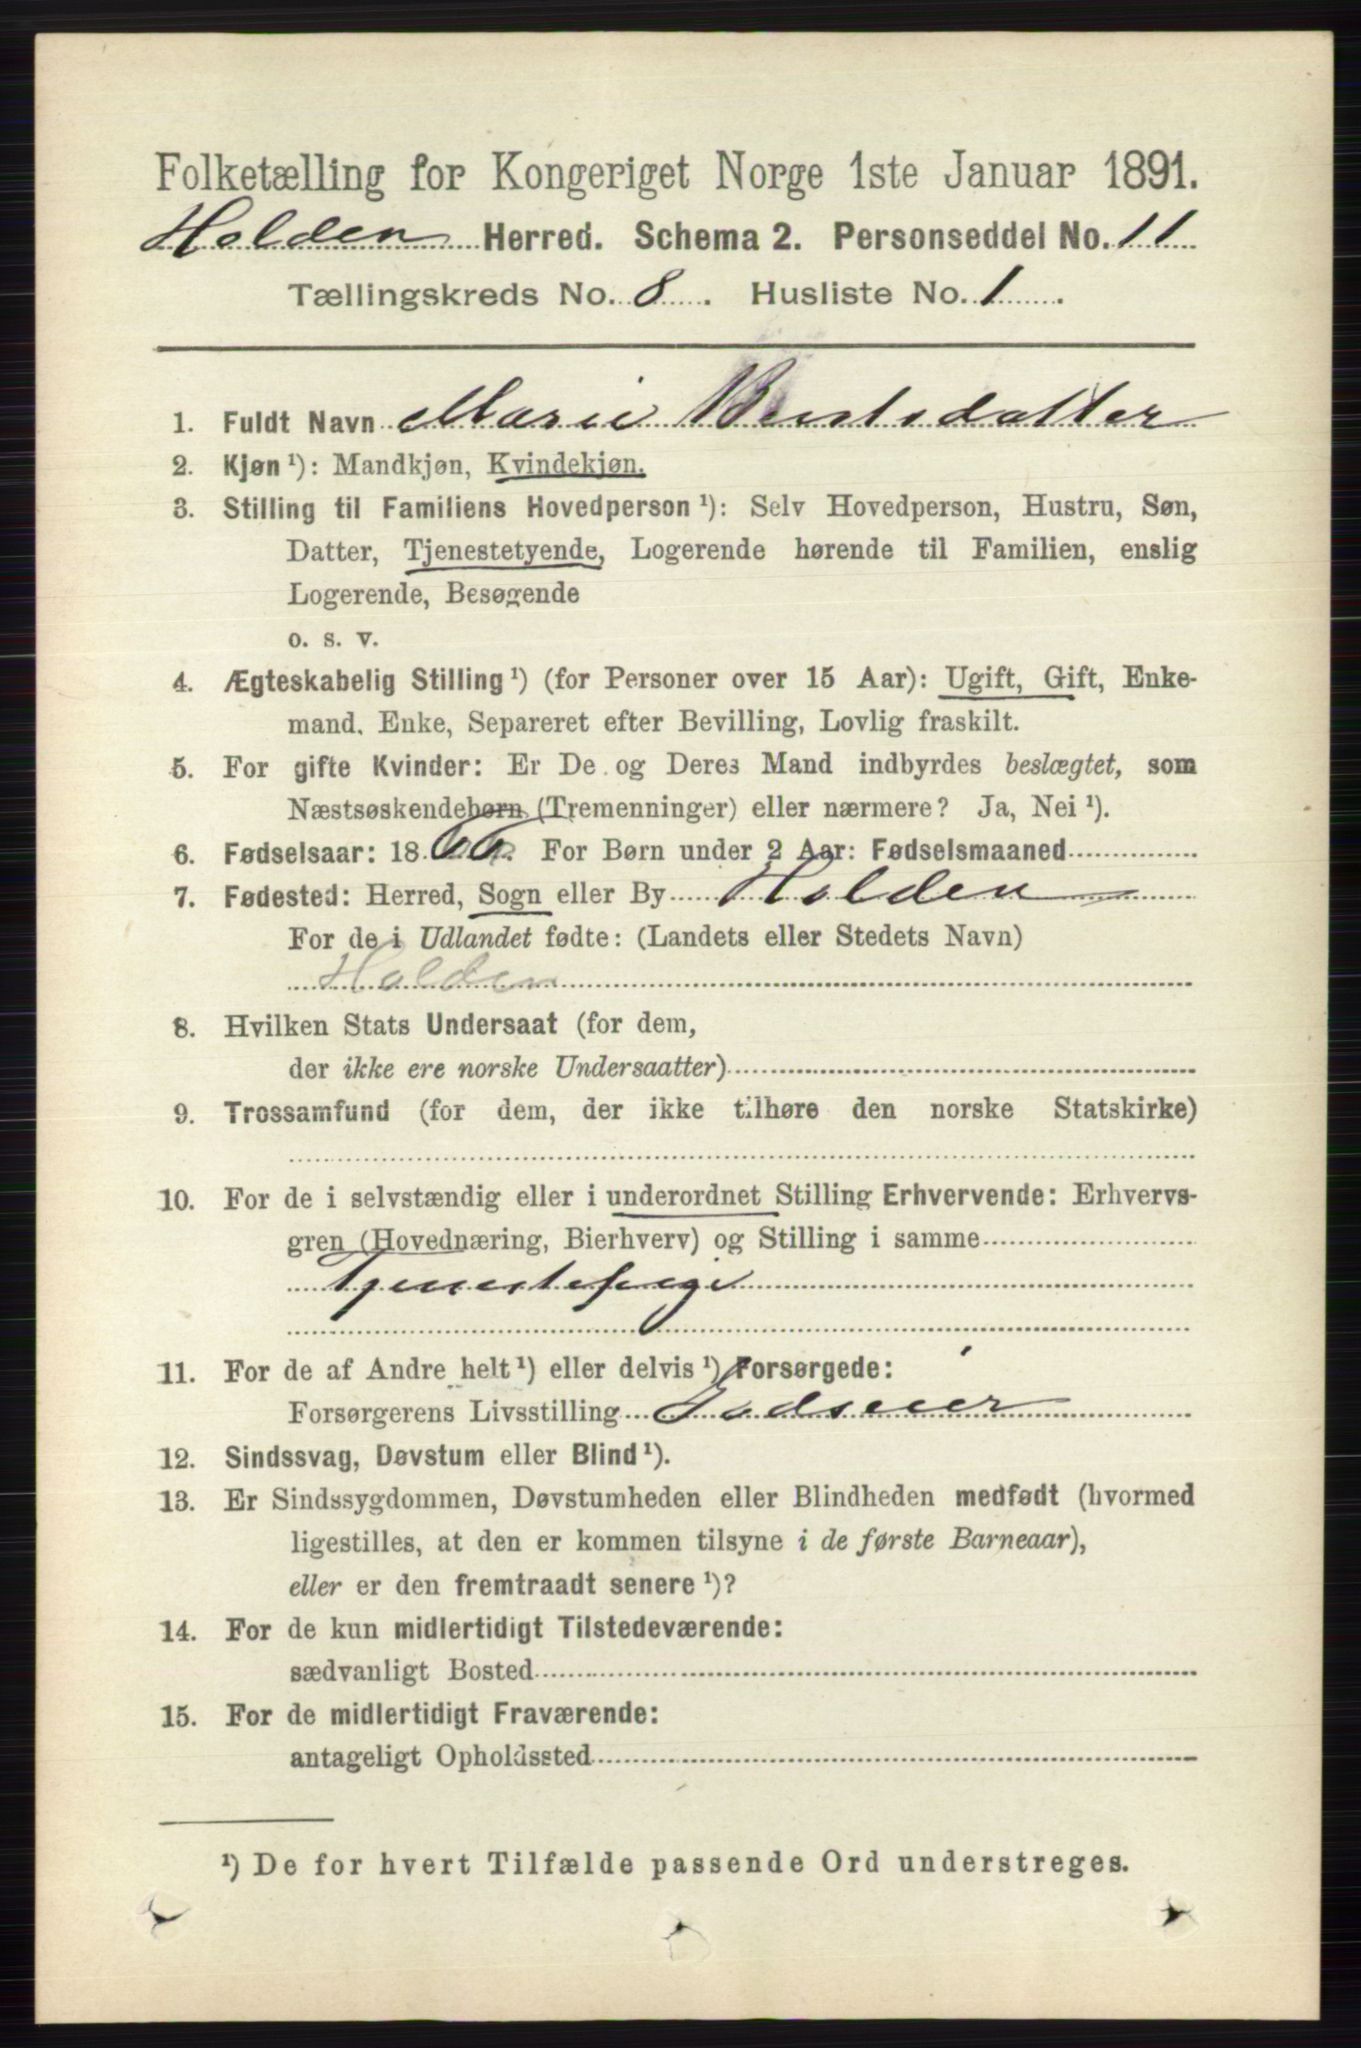 Folketælling for Kongeriget Norge 1ste Januar 1891.
Holden Herred. Schema 2. Personseddel No. 11
Tællingskreds No. 8. Husliste No. 1.
1. Fuldt Navn Marie Berntsdatter
2. Kjøn ¹): Mandkjøn, Kvindekjøn.
3. Stilling til Familiens Hovedperson ¹): Selv Hovedperson, Hustru, Søn,
Datter, Tjenestetyende, Logerende hørende til Familien, enslig
Logerende, Besøgende
o. s. v.
4. Ægteskabelig Stilling ¹) (for Personer over 15 Aar): Ugift, Gift, Enke-
mand, Enke, Separeret efter Bevilling, Lovlig fraskilt.
5. For gifte Kvinder: Er De og Deres Mand indbyrdes beslægtet, som
Næstsøskendebørn (Tremenninger) eller nærmere? Ja, Nei ¹).
6. Fødselsaar: 1866. For Børn under 2 Aar: Fødselsmaaned
7. Fødested: Herred, Sogn eller By Holden
For de i Udlandet fødte: (Landets eller Stedets Navn)
Holden
8. Hvilken Stats Undersaat (for dem,
der ikke ere norske Undersaatter)
9. Trossamfund (for dem, der ikke tilhøre den norske Statskirke)
10. For de i selvstændig eller i underordnet Stilling Erhvervende: Erhvervs-
gren (Hovednæring, Bierhverv) og Stilling i samme
Tjenestepige
11. For de af Andre helt ¹) eller delvis ¹) Forsørgede:
Forsørgerens Livsstilling Godseier
12. Sindssvag, Døvstum eller Blind ¹).
13. Er Sindssygdommen, Døvstumheden eller Blindheden medfødt (hvormed
ligestilles, at den er kommen tilsyne i de første Barneaar),
eller er den fremtraadt senere ¹)?
14. For de kun midlertidigt Tilstedeværende:
sædvanligt Bosted
15. For de midlertidigt Fraværende:
antageligt Opholdssted
¹) De for hvert Tilfælde passende Ord understreges.